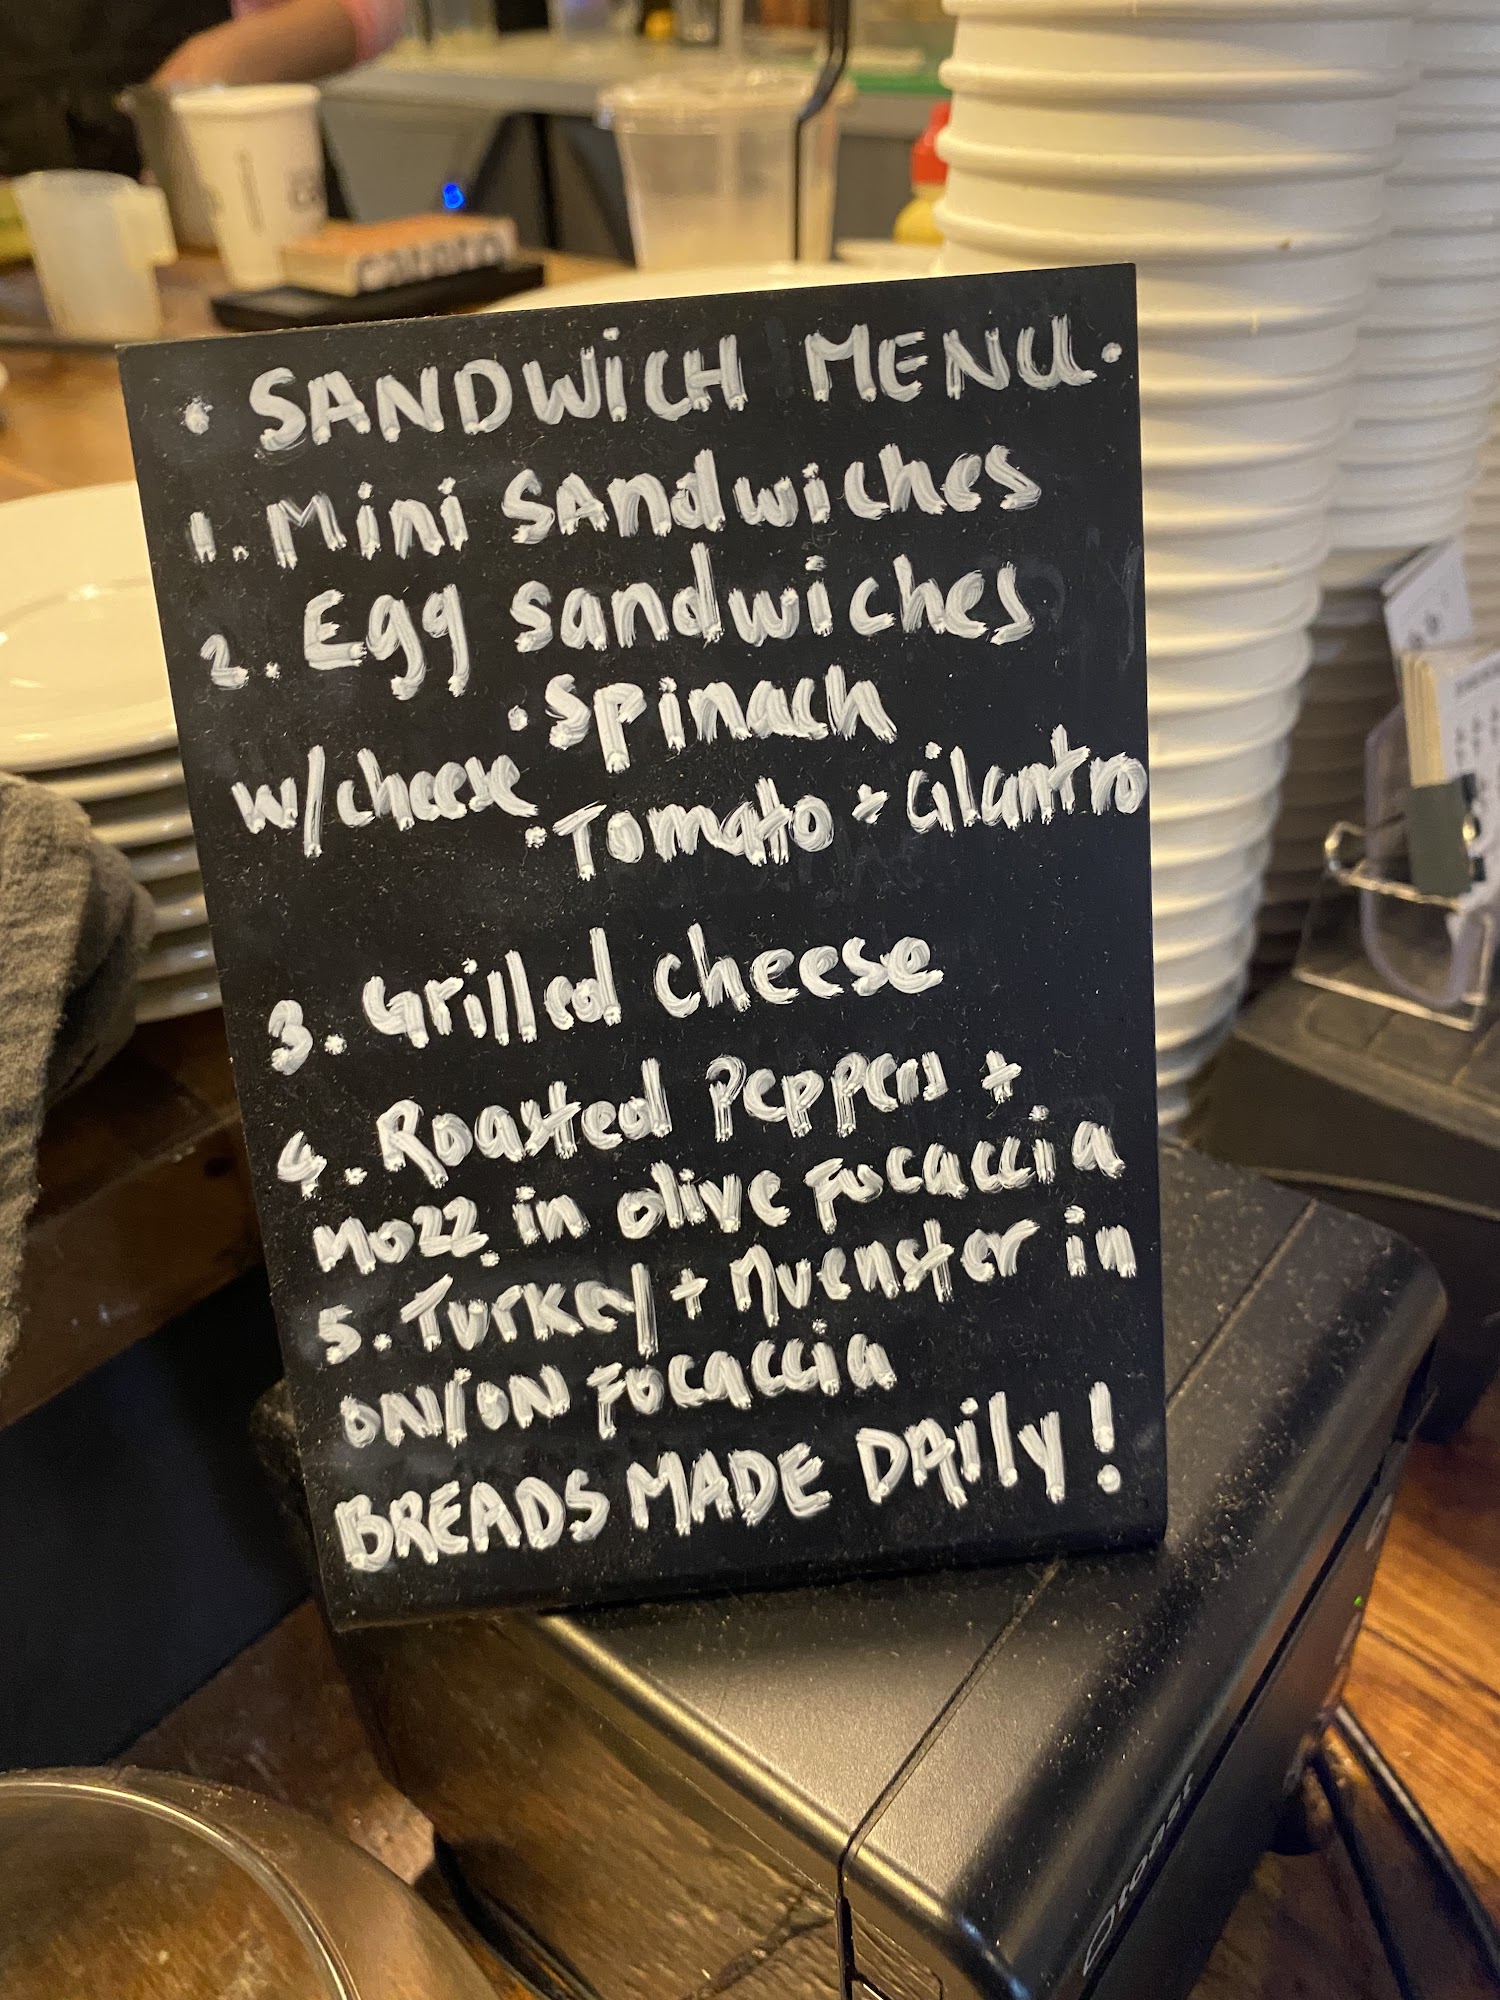 • SANDWiCH MENU •
1. Mini SAndwiches
2. Egg sandwiches
• Spinach
w/cheese
• Tomato + Cilantro
3. Grilled cheese
4. Roasted Peppers +
Mozz. in olive Focaccia
5. Turkey + Muenster in
ONiON Focaccia
BREADS MADE DAily!
toast